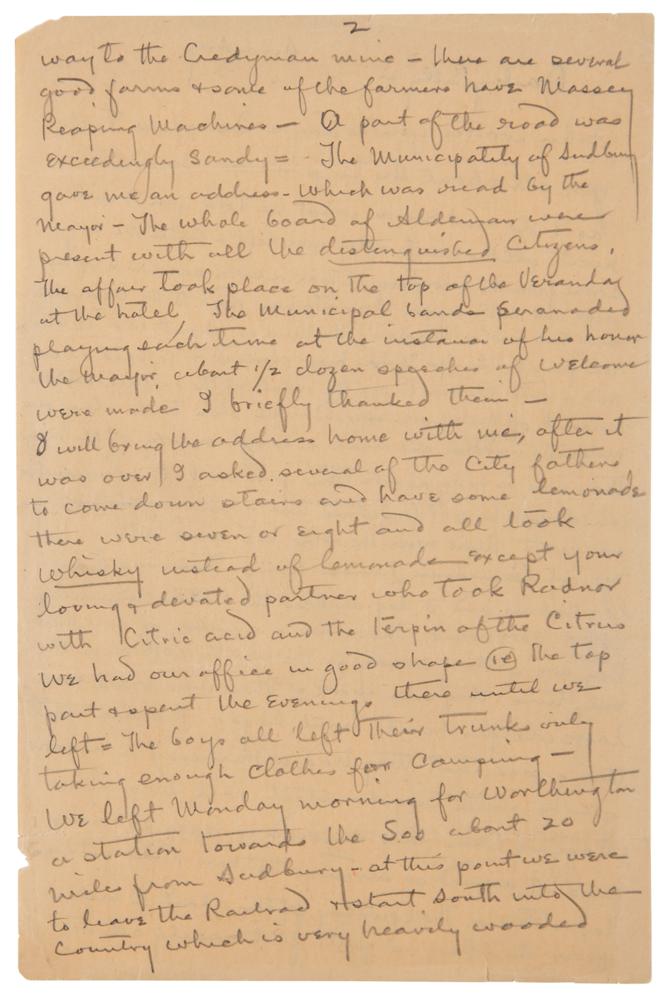 2
way to the Credyman mine – there are several
good farms & some of the farmers have Massey
Reaping Machines – A part of the road was
exceedingly sandy = The Municipality of Sudbury
gave me an address – which was read by the
Mayor – The whole board of Alderman were
present with all the distinguished Citizens.
The affair took place on the top of the Veranday
at the hotel, The Municipal bands seranaded
playing each time at the instance of his honor
the mayor, about 1/2 dozen speeches of welcome
were made I briefly thanked them –
I will bring the address home with me, after it
was over I asked several of the City fathers
to come down stairs and have some lemonade
there were seven or eight and all took
whisky instead of lemonade except your
loving & devated partner who took Radnor
with Citric acid and the Terpin of the Citrus
We had our office in good shape (ie) The top
part & spent the Evenings there until we
left = The boys all left Their trunks only
taking enough clothes for Camping –
We left Monday morning for Worthington
a station towards the Soo about 20
miles from Sudbury – at this point we were
to leave the Railroad & start South into the
Country which is very heavily wooded